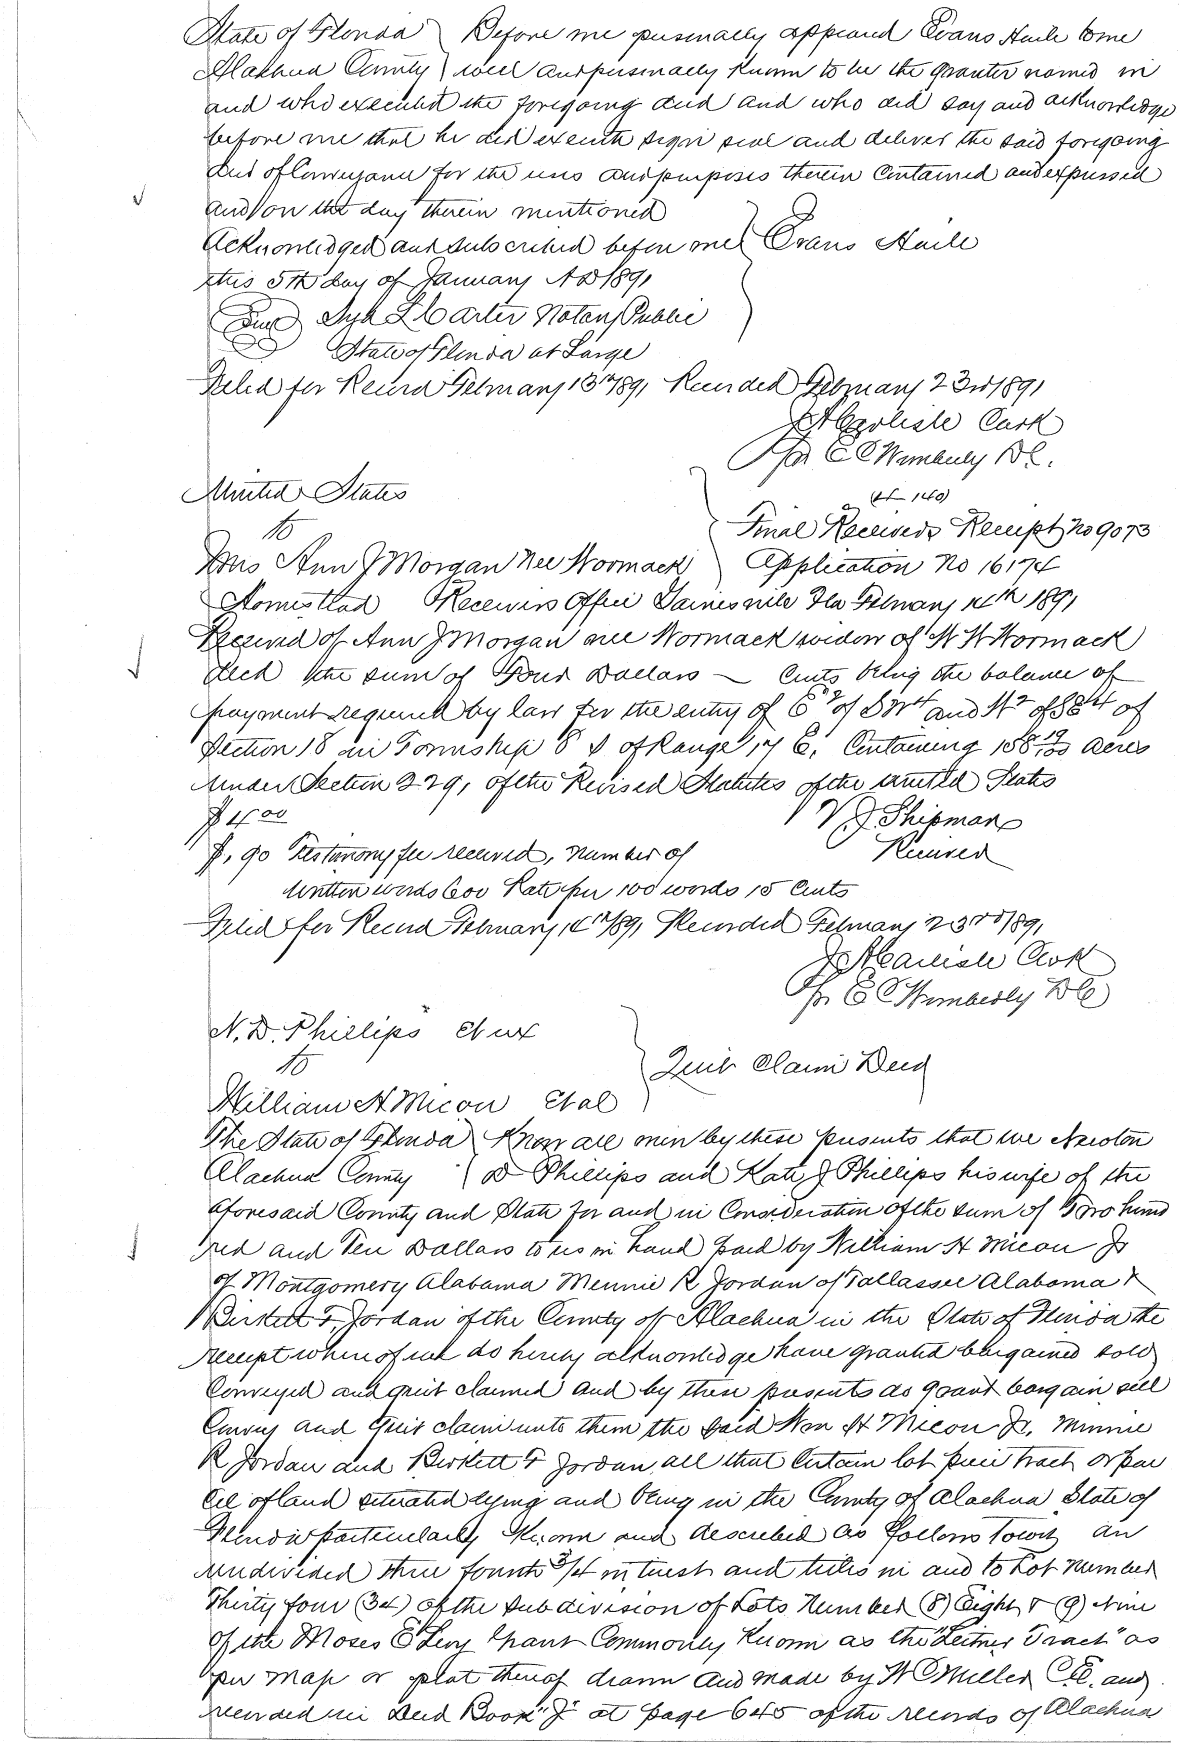 State of Florida } Before me personally appeared Evans Haile to me
Alachua County } well and personally known to be the grantor named in
and who executed the foregoing deed and who did say and acknowledge
before me that he did execute sign seal and deliver the said foregoing
deed of Conveyance for the uses and purposes therein contained and expressed
and on the day therein mentioned
Acknowledged and subscribed before me } Evans Haile
this 5th day of January AD 1891
L Carter Notary Public
State of Florida at Large
Filed for Record February 13th 1891 Recorded February 23rd 1891
J A Carlisle Clerk
pr E C Wimberly D.C.
United States
(4-140)
to
Final Receivers Receipt No 9073
Mrs Ann J Morgan nee Wormack } Application No 16174
Homestead Receivers Office Gainesville Fla February 14th 1891
Received of Ann J Morgan nee Wormack widow of W H Wormack
decd the sum of Four Dollars — Cents being the balance of
payment required by law for the entry of E 2 of SW 4 and W 2 of SE 4 of
Section 18 in Township 8 S of Range 17 E. Containing 158 19/100 acres
under Section 2291 of the Revised Statutes of the United States
$4 00 V. J. Shipman
$.90 Testimony fee received, number of Receiver
written words 600 Rate per 100 words 15 Cents
Filed for Record February 14th 1891 Recorded February 23rd 1891
J A Carlisle Clerk
pr E C Wimberly D C
N. D. Phillips et ux
to
Quit Claim Deed
William H Micou et al
The State of Florida } Know all men by these presents that we Newton
Alachua County } D Phillips and Kate J Phillips his wife of the
aforesaid County and State for and in Consideration of the sum of Two hund
red and Ten Dollars to us in hand paid by William H Micou Jr
of Montgomery Alabama Minnie R Jordan of Tallassee Alabama &
Birkett F. Jordan of the County of Alachua in the State of Florida the
receipt whereof we do hereby acknowledge have granted bargained sold
Conveyed and quit claimed and by these presents do grant bargain sell
Convey and Quit claim unto them the said Wm H Micou Jr. Minnie
R Jordan and Birkett F Jordan all that certain lot piece tract or par
cel of land situated lying and being in the County of Alachua State of
Florida particularly known and described as follows towit, an
undivided three fourth 3/4 interest and titles in and to Lot Number
Thirty four (34) of the subdivision of Lots Number (8) Eight & (9) Nine
of the Moses E Levy Grant Commonly Known as the "Leitner Tract" as
per map or plat thereof drawn and made by W C Miller C.E. and
recorded in Deed Book "J" at page 645 of the records of Alachua